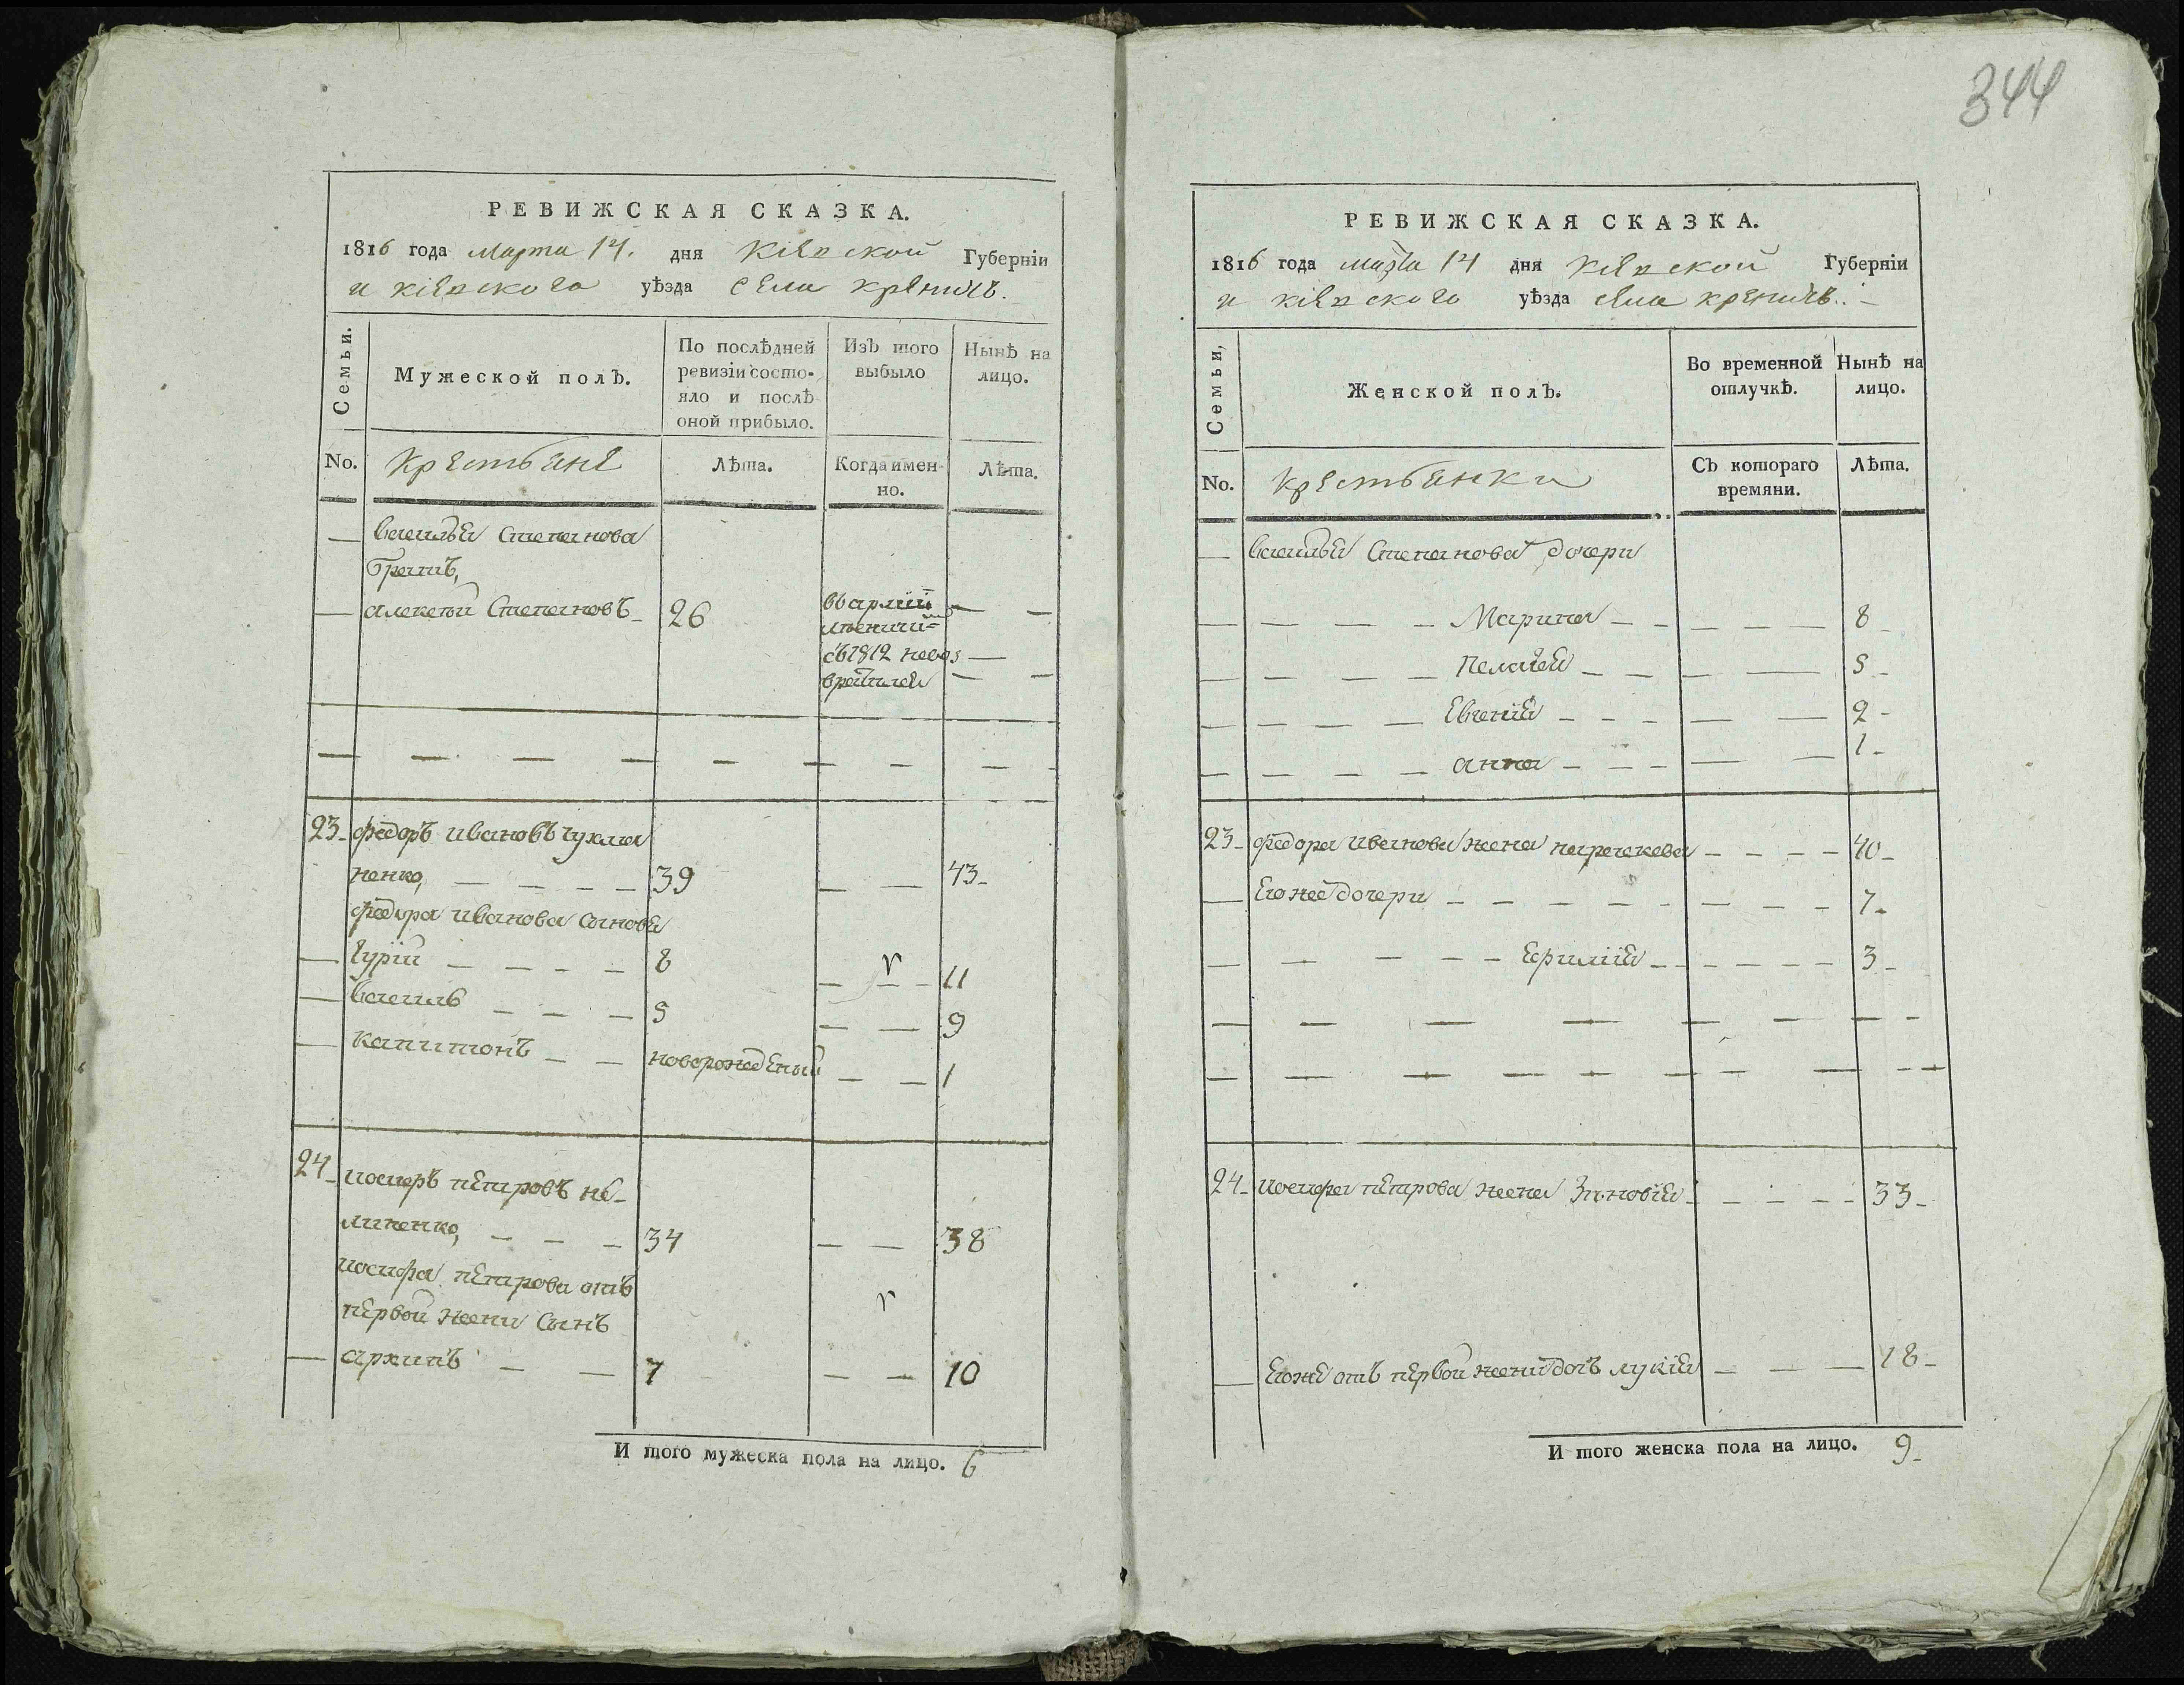 344
РЕВИЖСКАЯ СКАЗКА.
1816 года марта 14. дня Кіевской Губерніи
и кіевского уѣзда села кренычъ.
Семьи.
Мужеской полъ.
По послѣдней
ревизіи состо-
яло и послѣ
оной прибыло.
Изъ того
выбыло
Нынѣ на
лицо.
No.
Крестьяне
Лѣта.
Когда имен-
но.
Лѣта.
василья Степанова
братъ,
алексѣй Степановъ 26
съ 1812 невоз
вратился
23 федоръ ивановъ чухма
ненко, 39 43
федора иванова сынове
гурій 8 11
василь 5 9
капитонъ новорожденый 1
24 иосифъ петровъ
34 38
иосифа петрова отъ
первой жени сынъ
архипъ 7 10
И того мужеска пола на лицо. 6
РЕВИЖСКАЯ СКАЗКА.
1816 года марта 14 дня Кіевской Губерніи
и кіевского уѣзда села кренычъ.
Семьи,
Женской полъ.
Во временной
отлучкѣ.
Нынѣ на
лицо.
No.
крестьянки
Съ котораго
времяни.
Лѣта.
василья Степанова дочери
Марина 8
Пелагея 5
Евгенія 2
анна 1
23 федора иванова жена параскева 40
Егоже дочери 7
Ефимія 3
24 иосифа петрова жена Зиновія 33
Егоже отъ первой жени дочь лукія 18
И того женска пола на лицо. 9